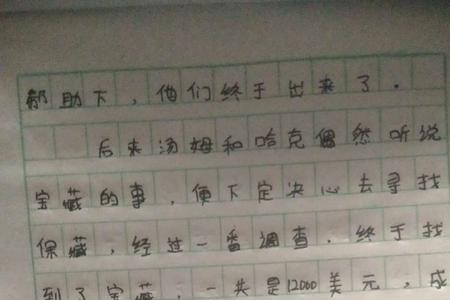 帮助下，他们终于出来了.
后来汤姆和哈克偶然听说
宝藏的事，便下定决心去寻找
保藏，经过一番调查，终于找
到了宝藏，一共是12000美元，成